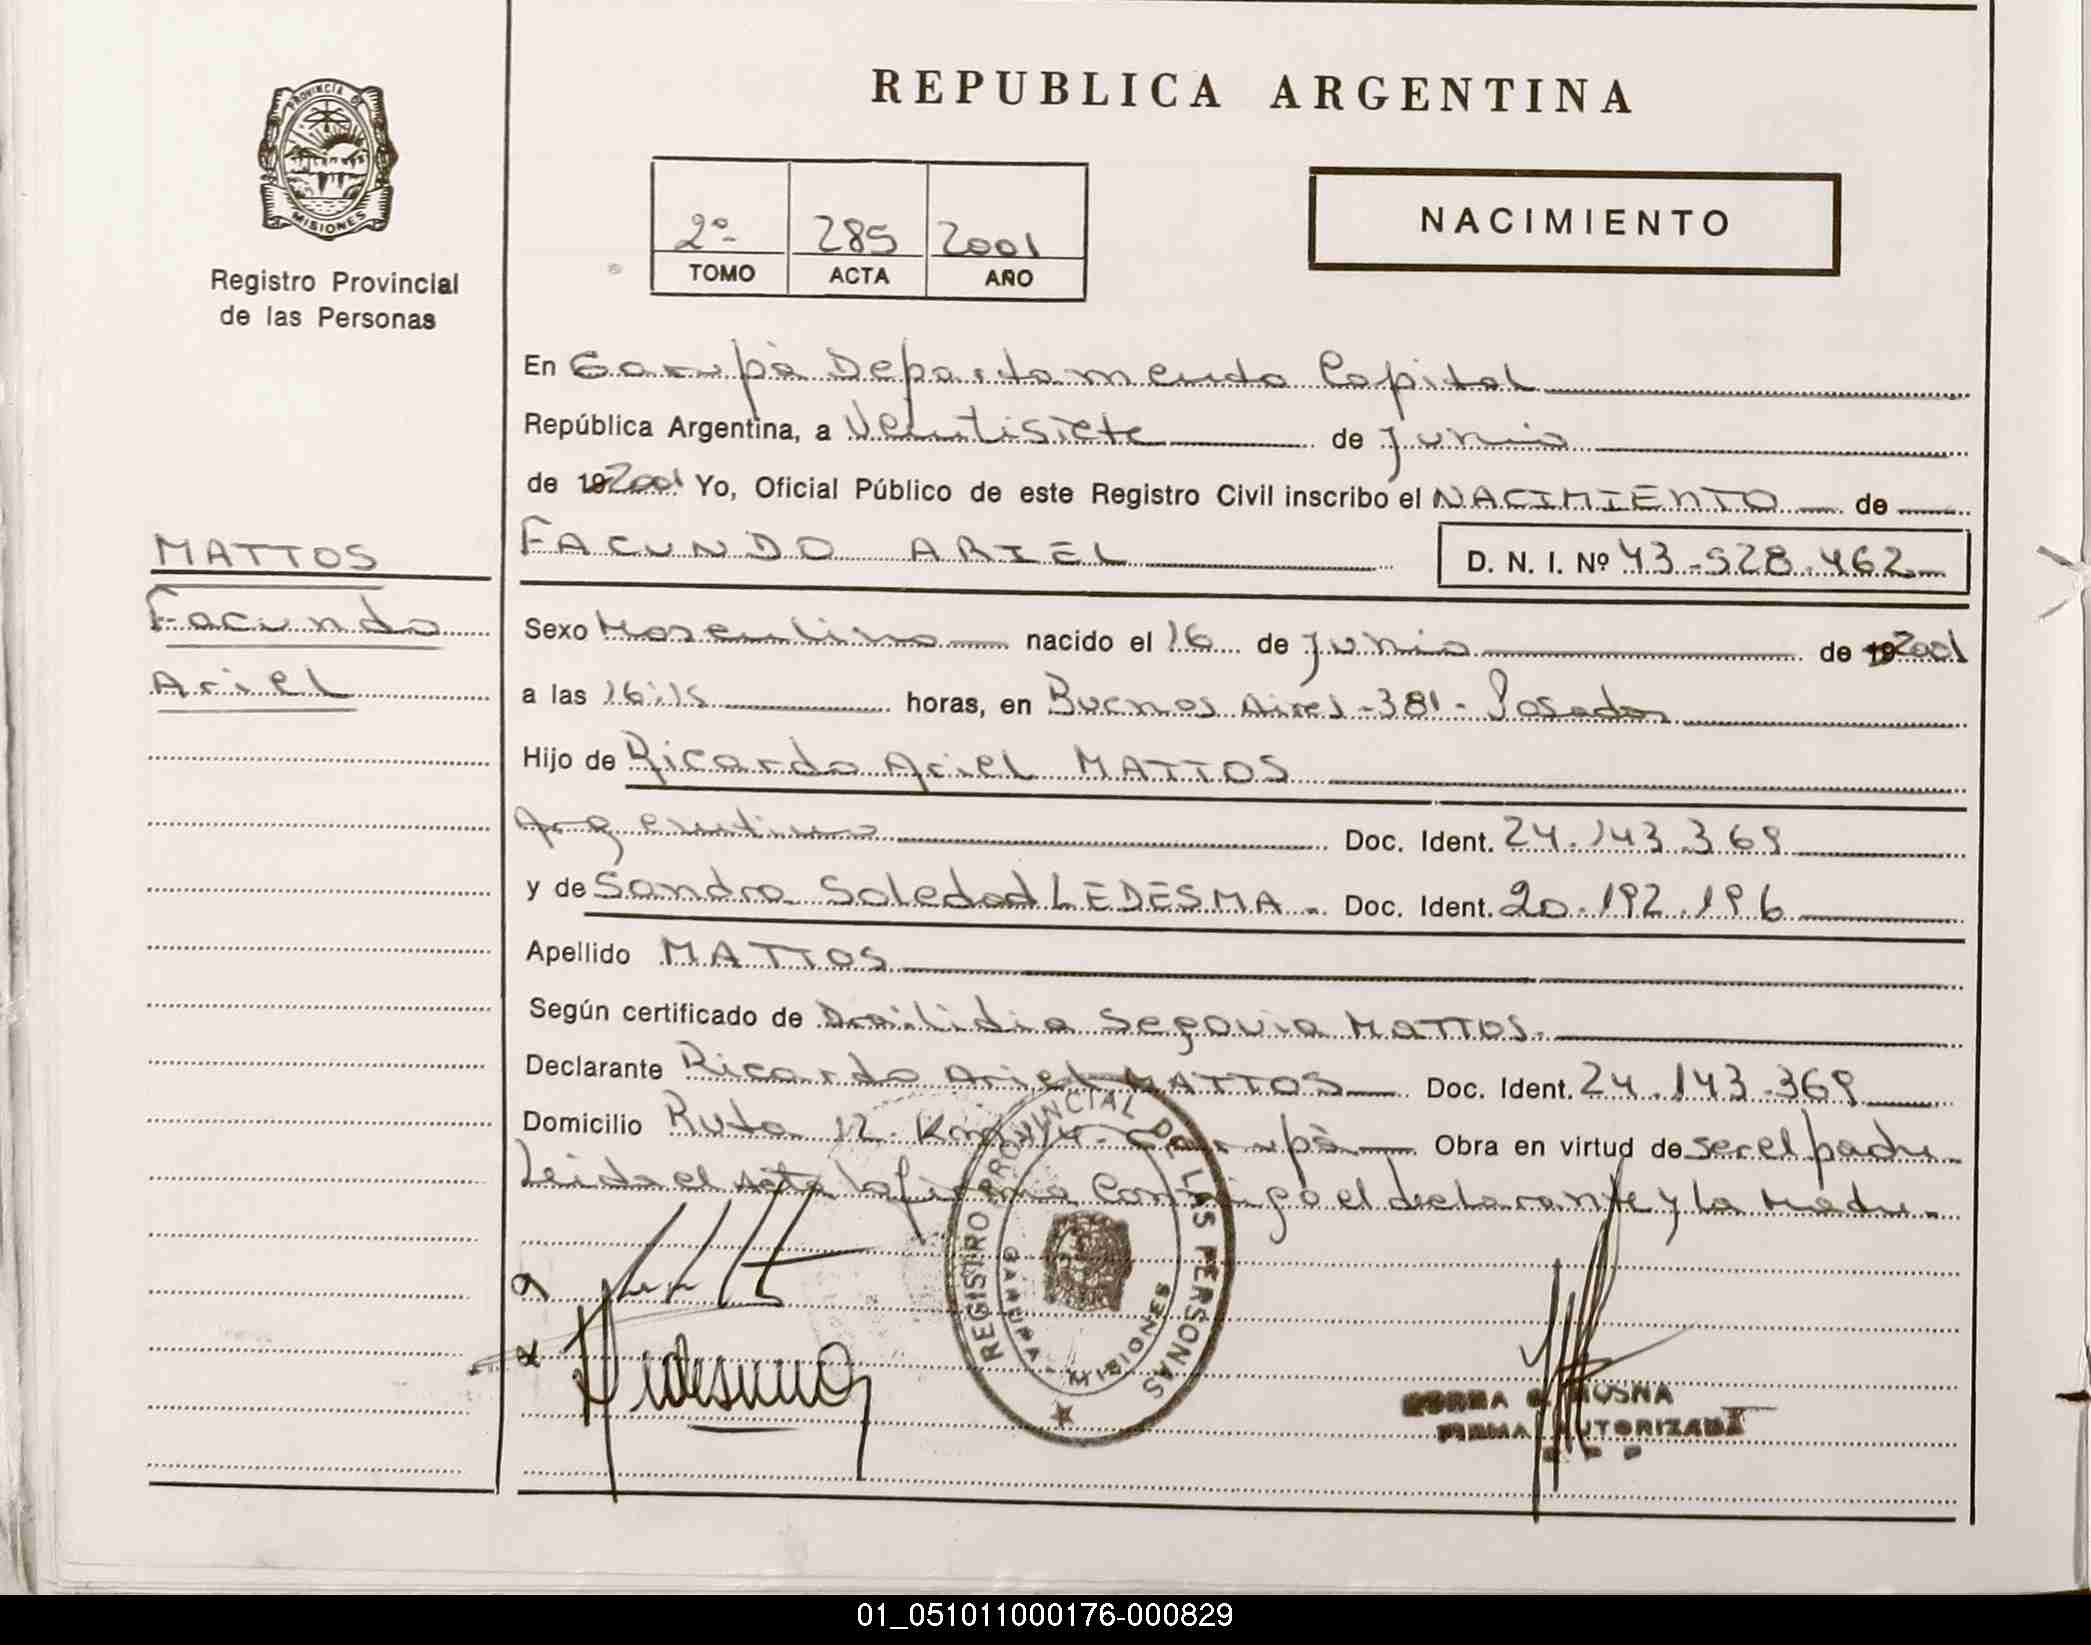 PROVINCIA DE
MISIONES
Registro Provincial
de las Personas
REPUBLICA ARGENTINA
2º 285 2001
TOMO ACTA AÑO
NACIMIENTO
En Garupà Departamento Capital
República Argentina, a Veintisiete de Junio
de 192001 Yo, Oficial Público de este Registro Civil inscribo el NACIMIENTO de
FACUNDO ARIEL D. N. I. Nº 43-528.462
MATTOS
Facundo
Ariel
Sexo Masculino nacido el 16 de Junio de 192001
a las 16:15 horas, en Buenos Aires-381- Posadas
Hijo de Ricardo Ariel MATTOS
Argentino Doc. Ident. 24.143.369
y de Sandra Soledad LEDESMA Doc. Ident. 20.192.196
Apellido MATTOS
Según certificado de Dra: Lidia Segovia MATTOS.
Declarante Ricardo Ariel MATTOS Doc. Ident. 24.143.369
Domicilio Ruta 12. Garupà Obra en virtud de ser el padre
Leida el Acta la firma Conmigo el declarante y la Madre
REGISTRO PROVINCIAL DE LAS PERSONAS
GARUPA - MISIONES
Ledesma
FIRMA AUTORIZADA
01_051011000176-000829